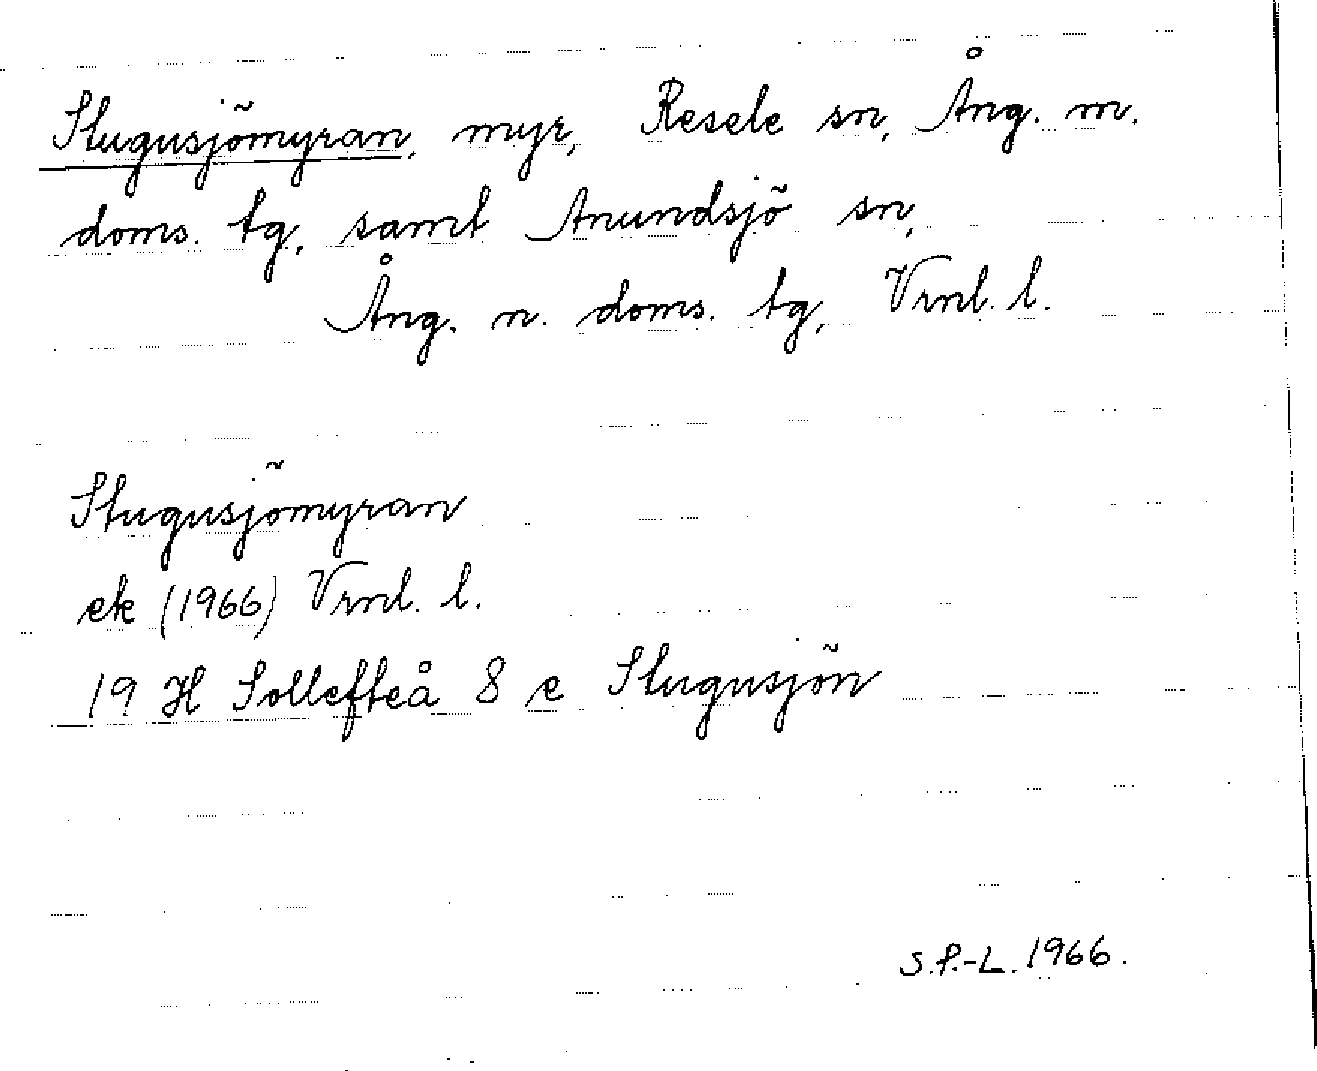 Stugusjömyran, myr, Resele sn, Ång. m.
doms. tg, samt Anundsjö sn,
Ång. n. doms. tg, Vrnl. l.
Stugusjömyran
ek (1966) Vrnl. l.
19 H Sollefteå 8 e Stugusjön
S.P.-L. 1966.